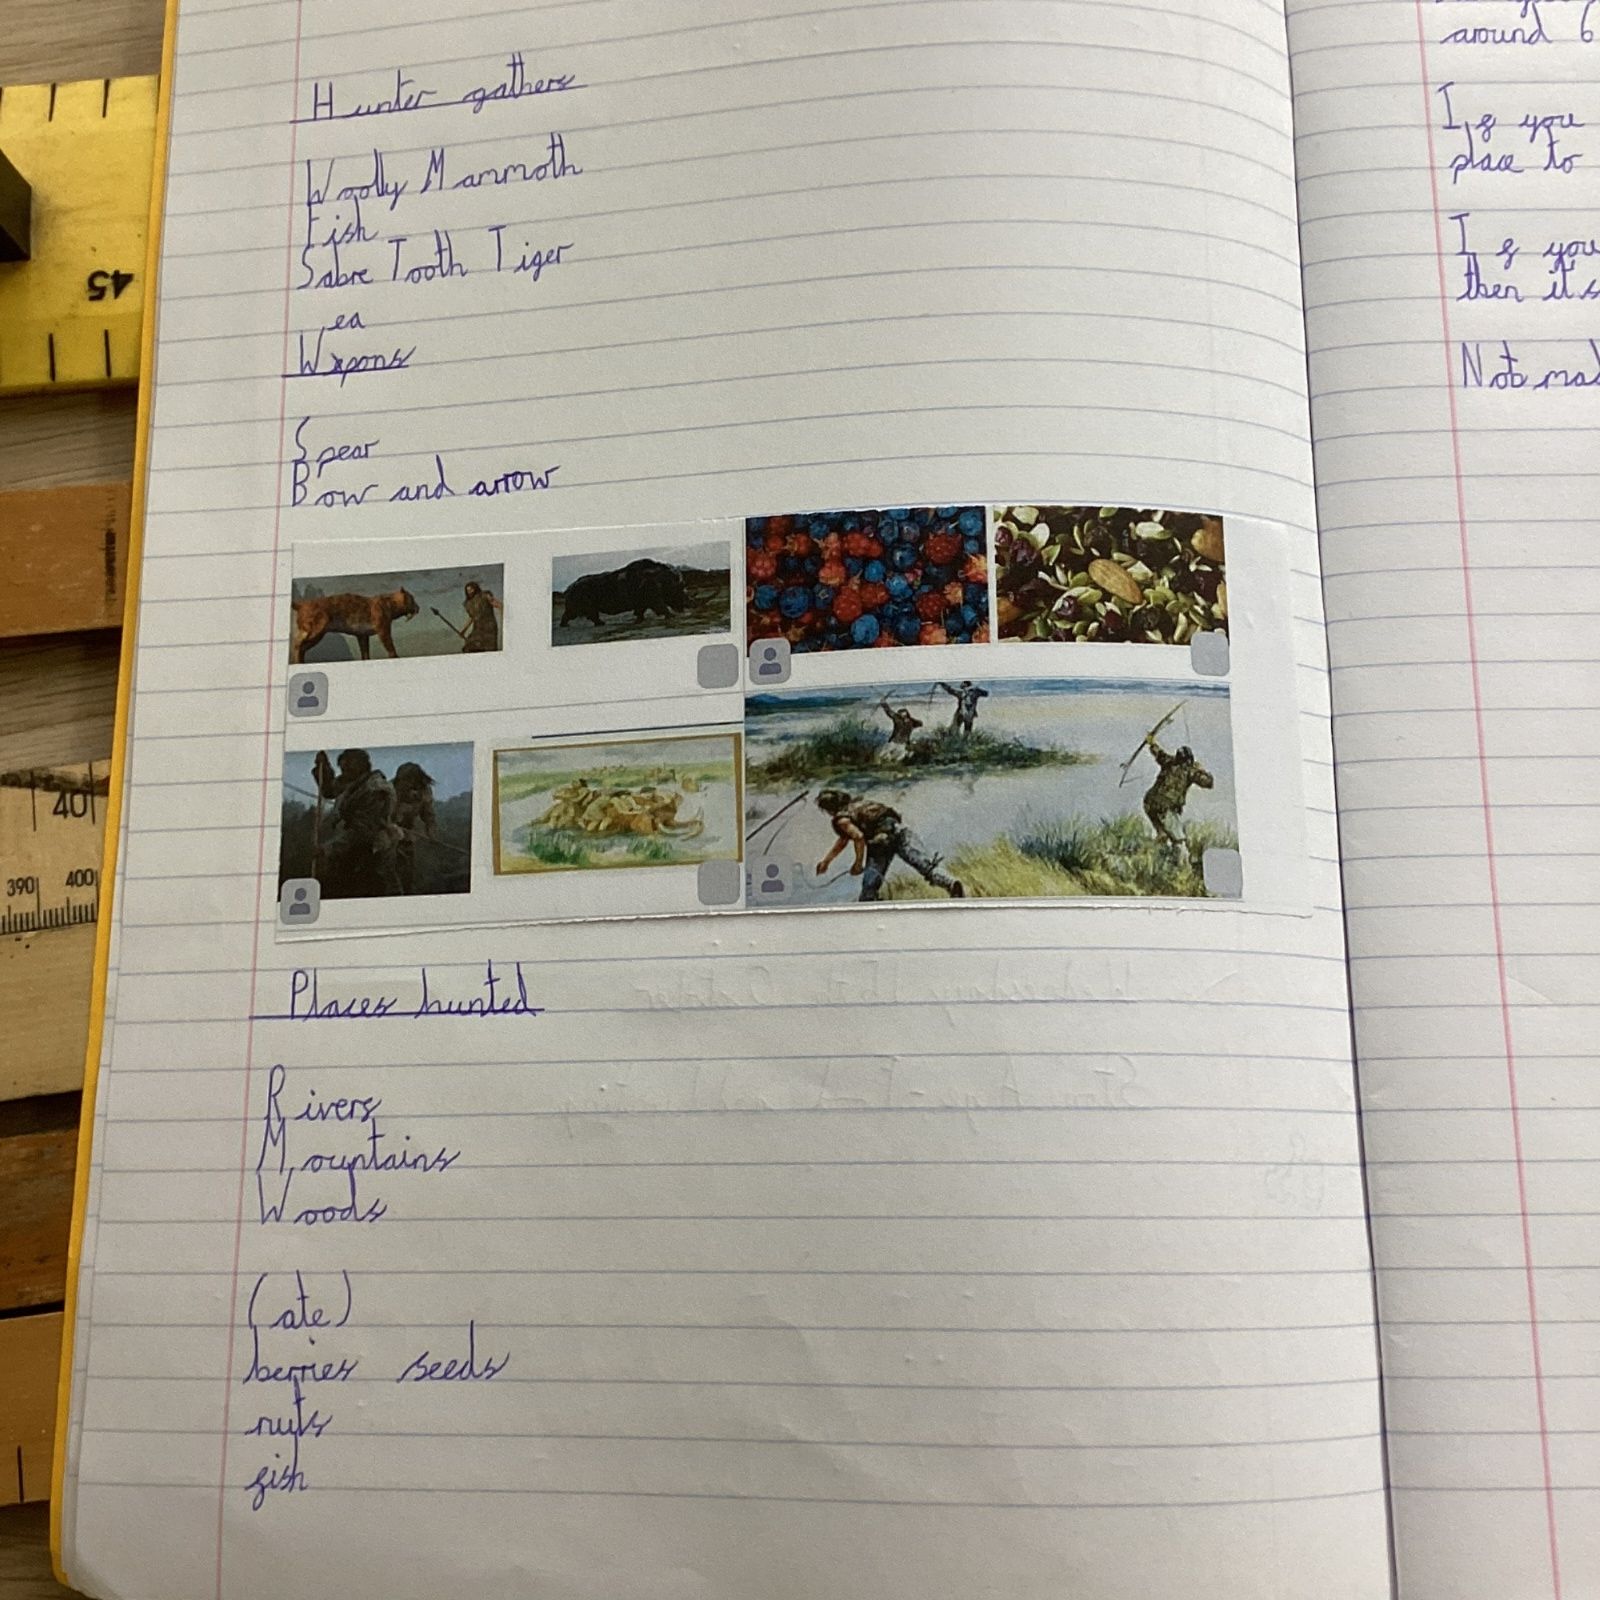 Hunter gathers
Woolly Mammoth
Fish
Sabre Tooth Tiger
ea
Wxpons
Spear
Bow and arrow
Places hunted
Rivers
Mountains
Woods
(ate)
berries seeds
nuts
fish
around 6
If you
place to
If you
then it's
Not mad
45
40
390 400